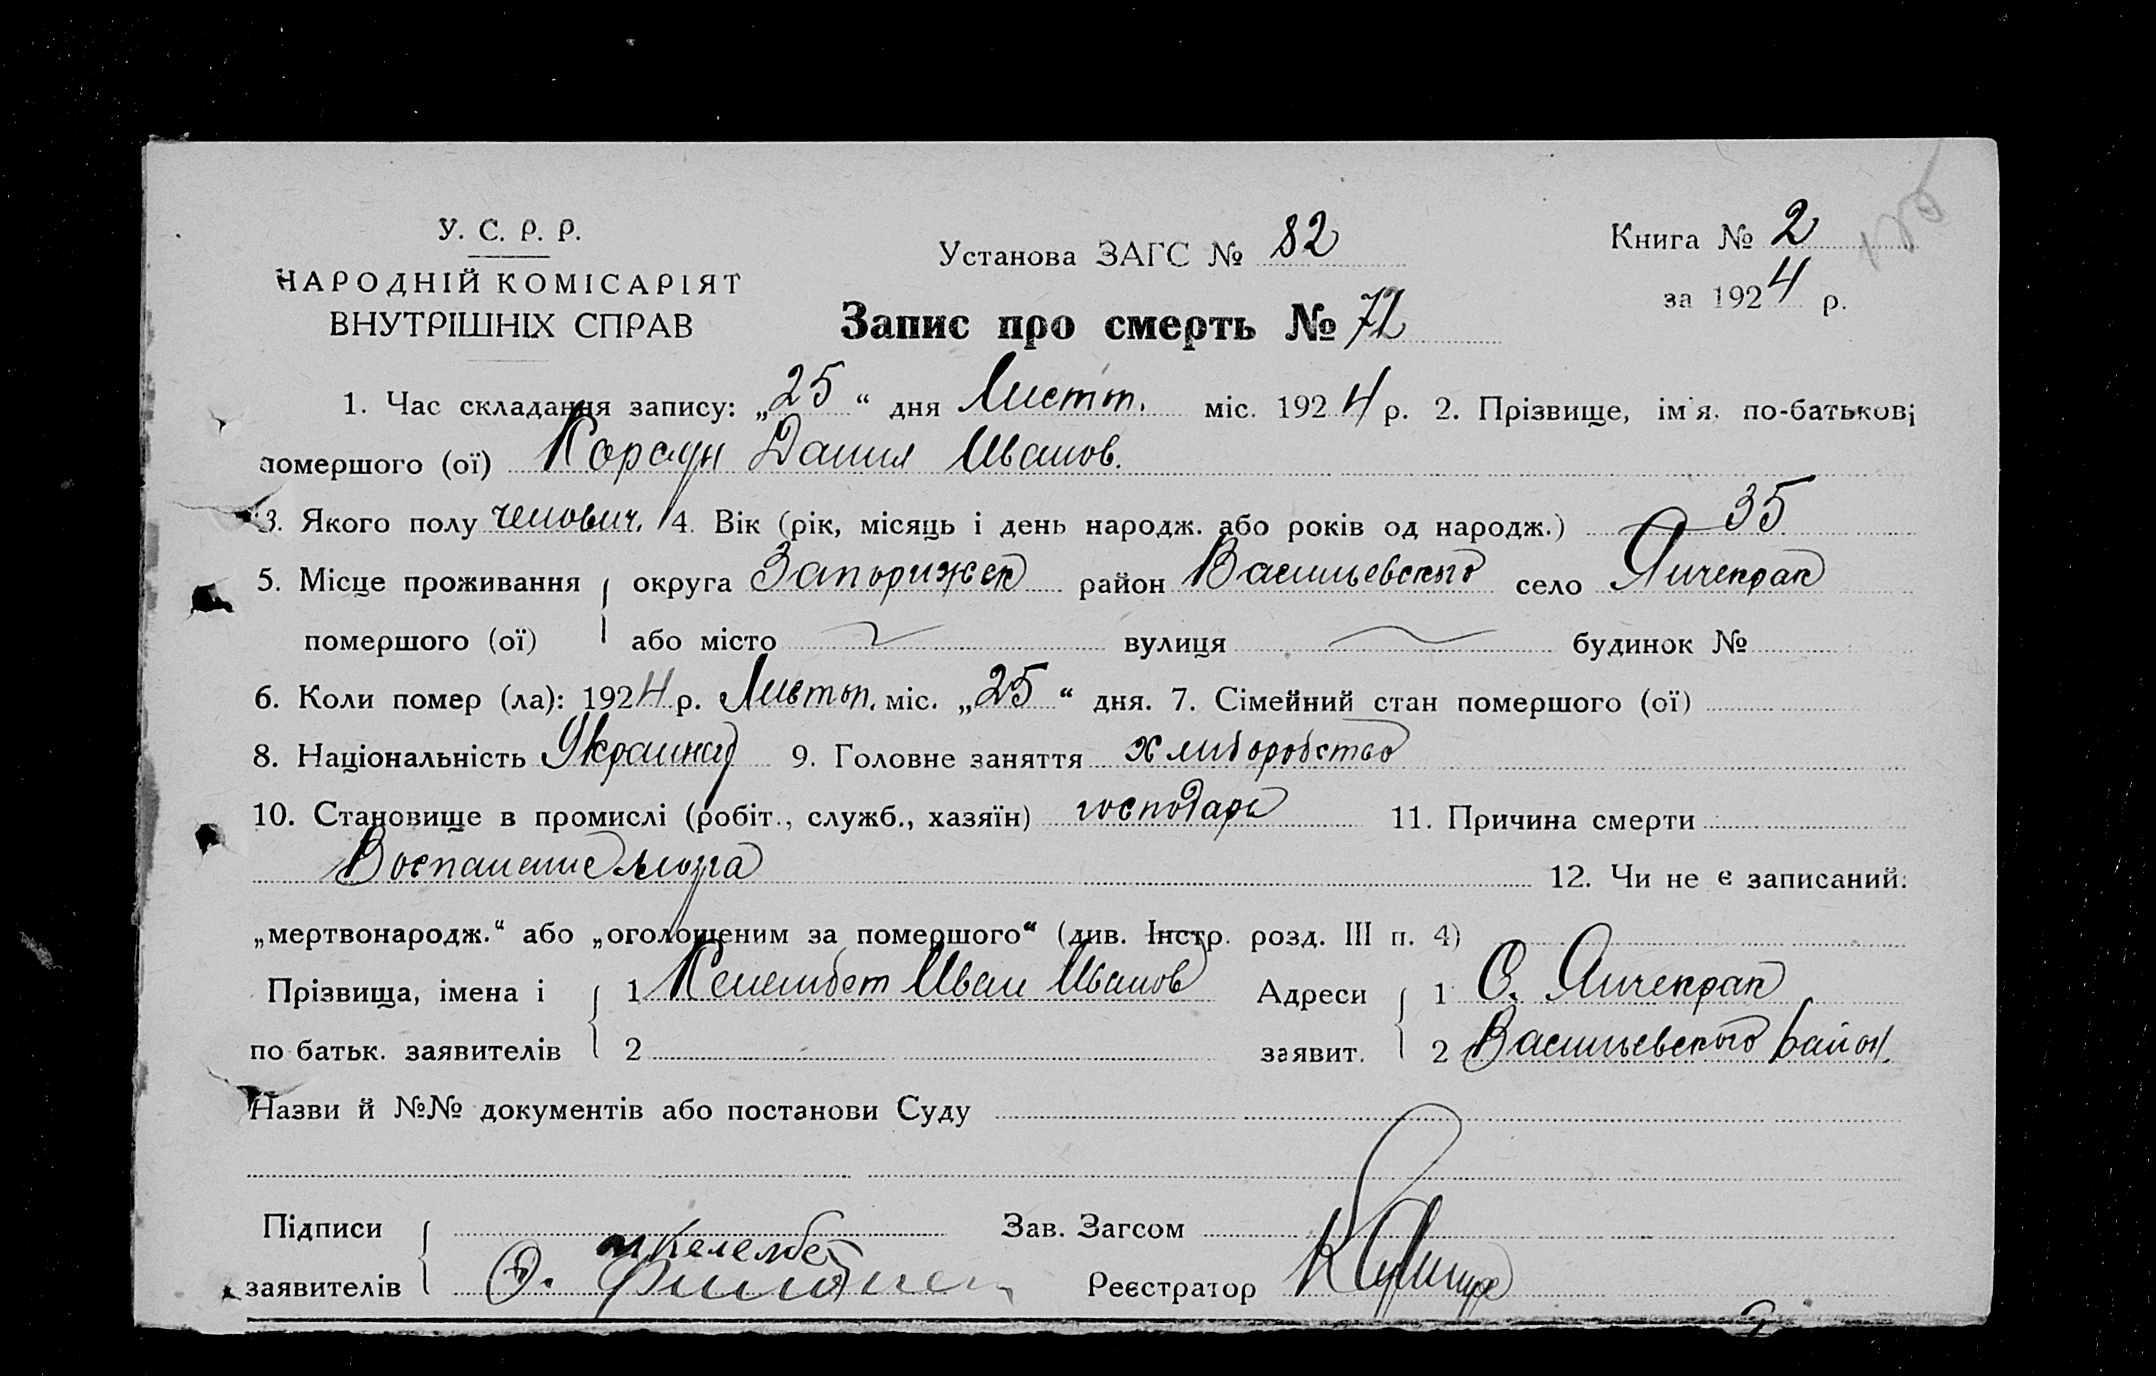 У. С. Р. Р.
НАРОДНІЙ КОМІСАРІЯТ
ВНУТРІШНІХ СПРАВ
Установа ЗАГС № 82
Книга № 2
за 1924 р.
Запис про смерть № 72
1. Час складання запису: „25“ дня Листп. міс. 1924 р. 2. Прізвище, ім'я, по-батькові
помершого (ої) Корсун Данил Иванов.
3. Якого полу челович. 4. Вік (рік, місяць і день народж. або років од народж.) 35
5. Місце проживання округа Запорижск район Васильевского село Янчекрак
помершого (ої) або місто вулиця будинок №
6. Коли помер (ла): 1924 р. Листоп. міс. „25“ дня. 7. Сімейний стан помершого (ої)
8. Національність 9. Головне заняття хлиборобство
10. Становище в промислі (робіт., служб., хазяїн) господарь 11. Причина смерти
Воспаление мозга
12. Чи не є записаний:
„мертвонародж.“ або „оголошеним за помершого“ (див. Інстр. розд. III п. 4)
Прізвища, імена і 1 Келембет Иван Иванов Адреси 1 С. Янчекрак
по батьк. заявителів 2 заявит. 2 Васильевского район.
Назви й №№ документів або постанови Суду
Підписи Зав. Загсом
Келембет
заявителів Реєстратор